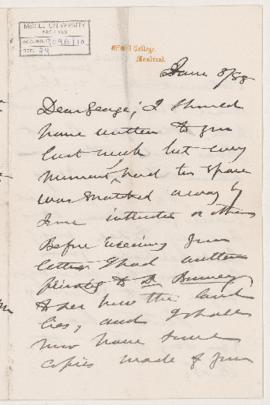 McGILL UNIVERSITY
ARCHIVES
McGill College,
Montreal.
June 8/88
Dear George, I should
have written to you
last week but every
moment I had to spare
was snatched away by
some intruder or other
Before receiving your
letter I had written
privately to Dr
to see how the land
lies, and I shall
now have some
copies made of your